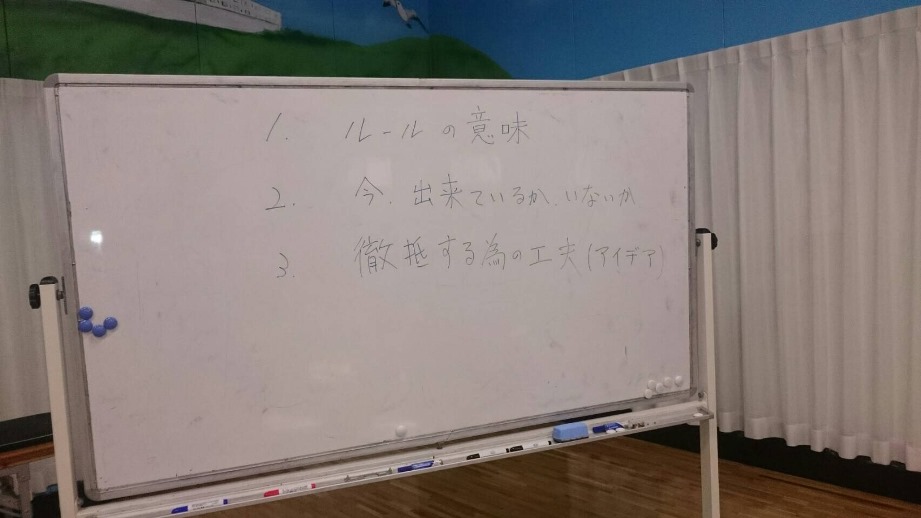 1. ルールの意味
2. 今、出来ているか、いないか
3. 徹抵する為の工夫(アイデア)